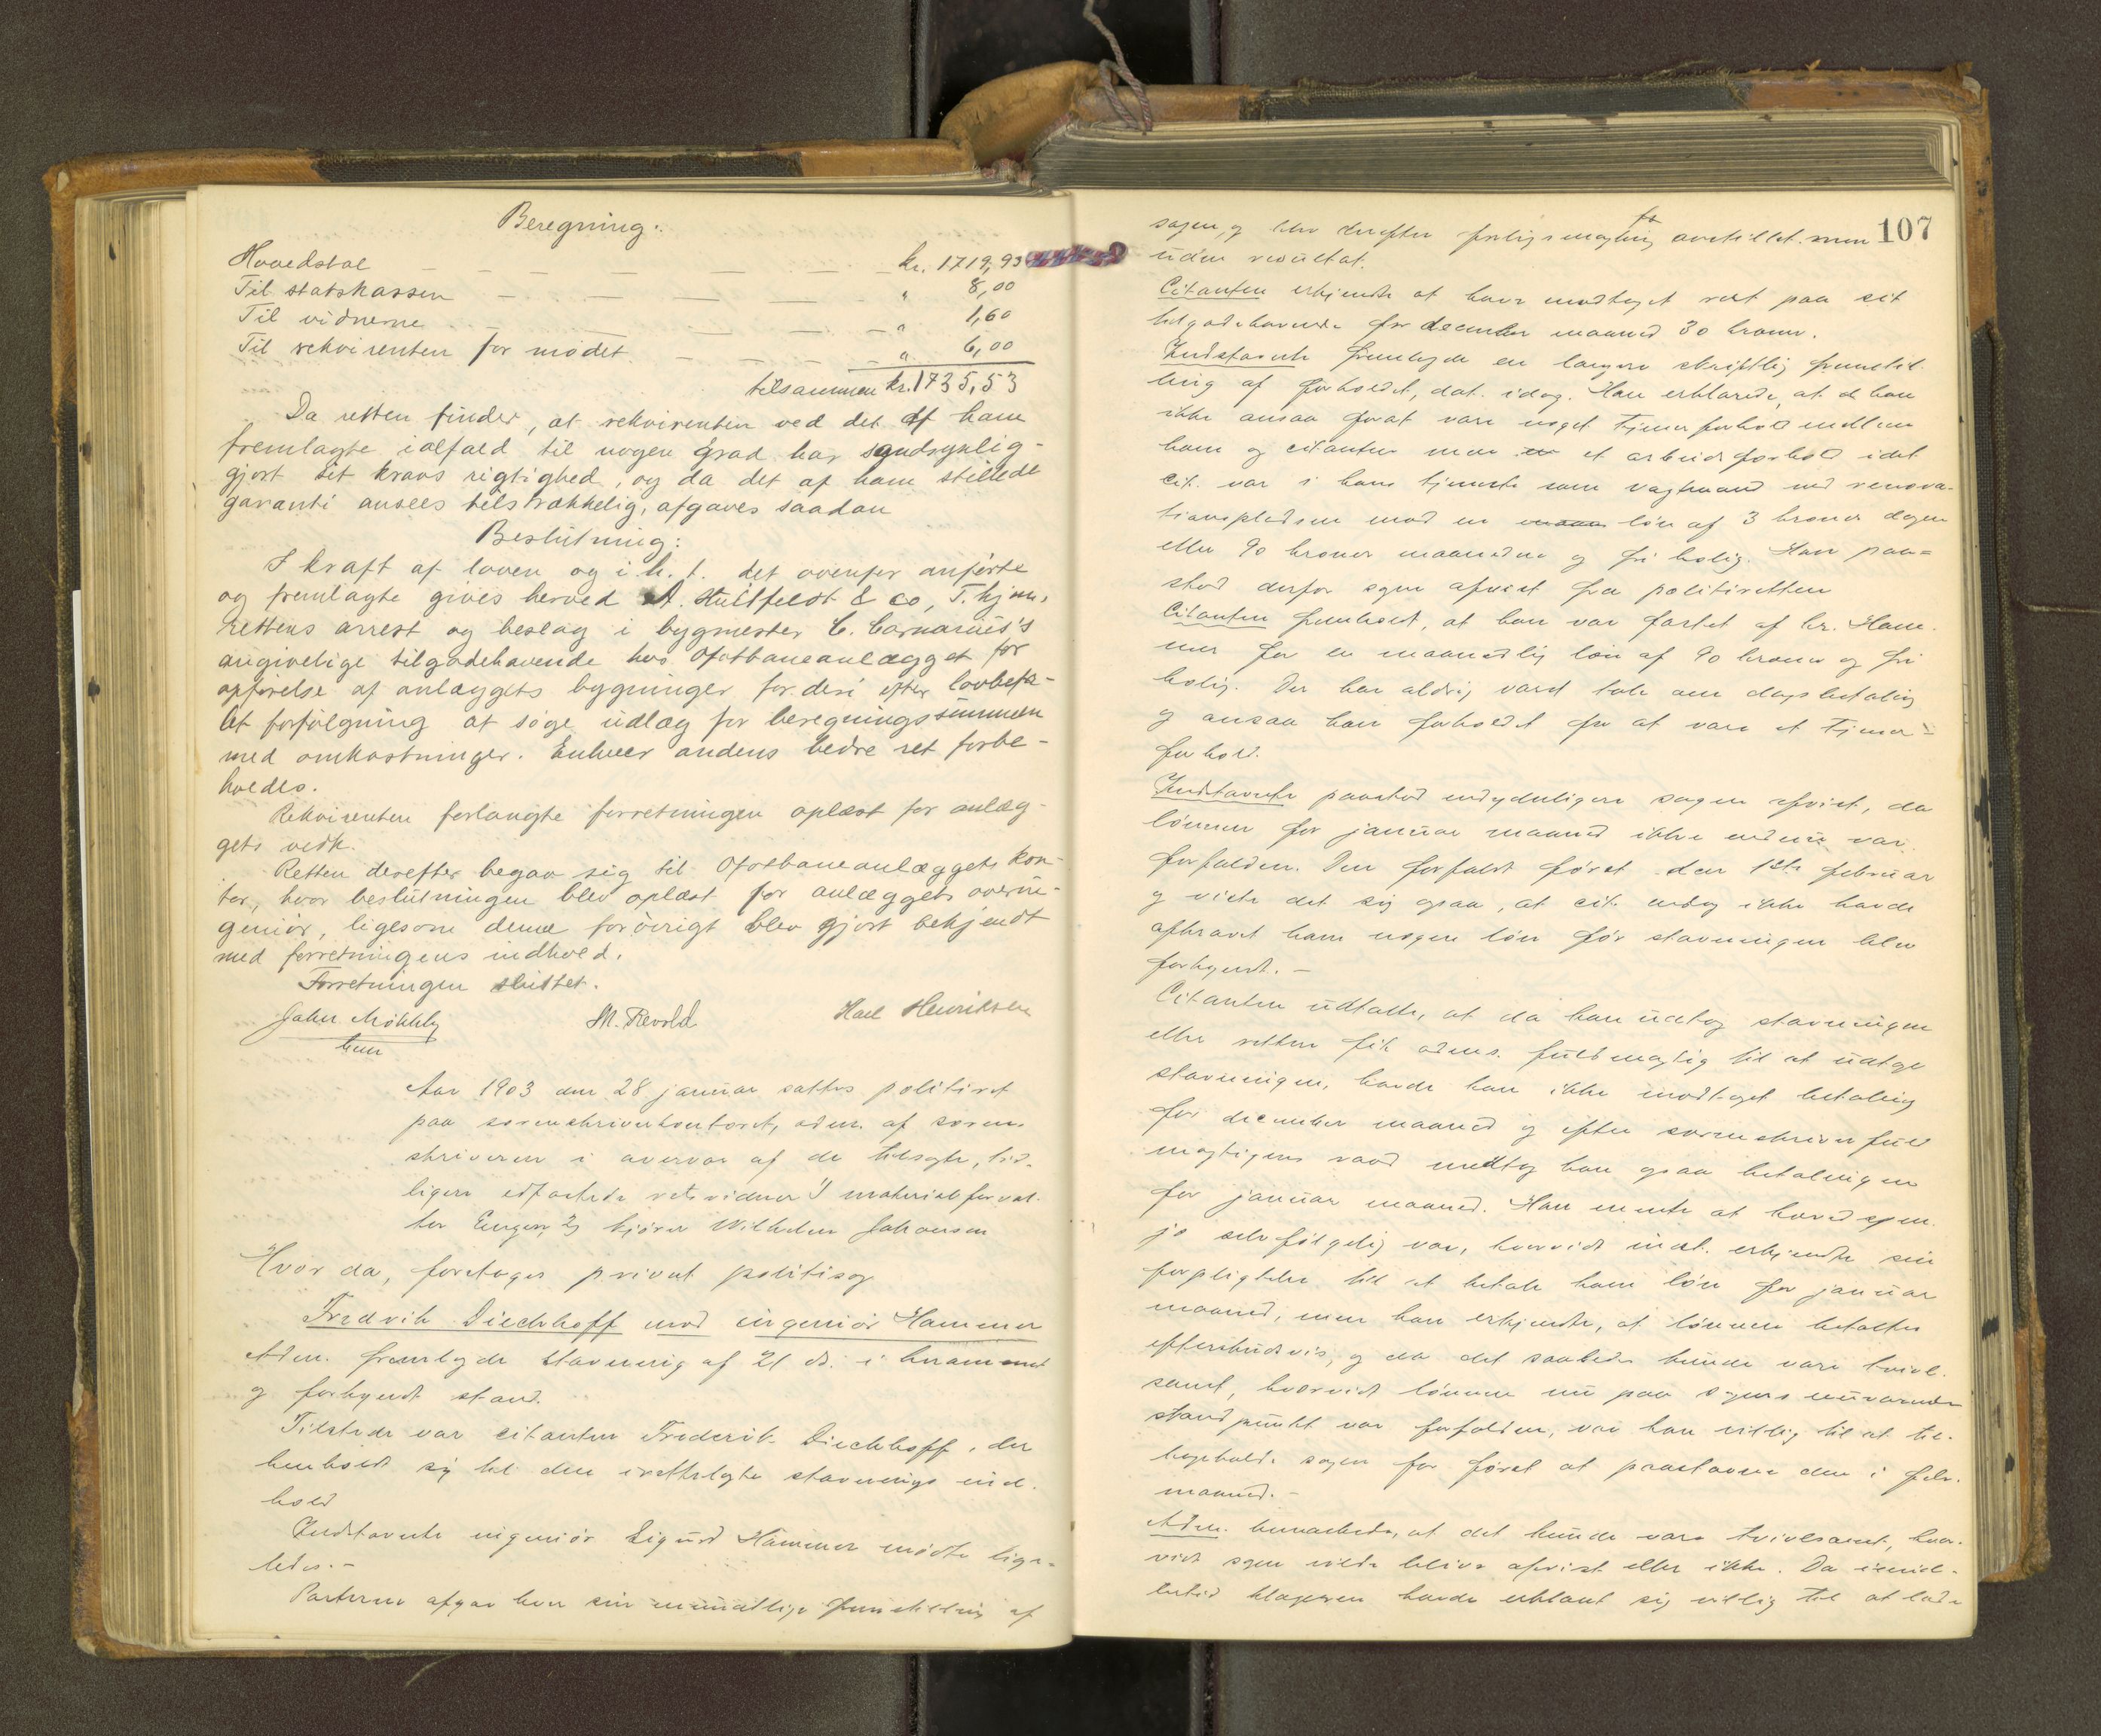 Beregning:
Hovedstol — — — — kr. 1719,93
Til statskassen — — — — " 8,00
Til vidnerne — — — " 1,60
Til rekvirenten for mødet — — — " 6,00
tilsammen kr. 1735,53
Da retten finder, at rekvirenten ved det af ham
fremlagte ialfald til nogen grad har sandsynlig-
gjort sit kravs rigtighed, og da det af ham stillede
garanti ansees tilstrækkelig, afgaves saadan
Beslutning:
I kraft af loven og i h. t. det ovenfor anførte
og fremlagte gives herved A. Huitfeldt & co, T. hjem,
Rettens arrest og beslag i bygmester C. Carnarius's
angivelige tilgodehavende hos Ofotbaneanlægget for
opførelse af anlæggets bygninger for deri efter lovbefa-
let forfølgning at søge udlæg for beregningssummen
med omkostninger. Enhver andens bedre ret forbe-
holdes.
Rekvirenten forlangte forretningen oplæst for anlæg-
gets vedk.
Retten derefter begav sig til Ofotbaneanlæggets kon-
tor, hvor beslutningen blev oplæst for anlæggets overin-
geniør, ligesom denne forøvrigt blev gjort bekjendt
med forretningens indhold.
Forretningen sluttet.
M. Revold
Karl Henriksen
Aar 1903 den 28 januar sattes politiret
paa sorenskriverkontoret, adm. af soren-
skriveren i overvær af de tilsagte, tid-
ligere edfæstede retsvidner 1) materialforval-
ter Engen, 2) kjører Wilhelm Johansen
Hvor da, foretages privat politisag
Fredrik Diechhoff mod ingeniør Hammer
Adm. fremlagde stævning af 21 ds. i
og forkyndt stand.
Tilstede var citanten Frederik Diechhoff, der
henholdt sig til den irettelagte stævnings ind-
hold
Indstævnte ingeniør Sigurd Hammer mødte lige-
ledes.-
Parterne afgav hver sin mundtlige fremstilling af
107
sagen, og blev derefter forligsmægling fo anstillet, men
uden resultat.
Citanten erkjendte at have modtaget rest paa sit
tilgodehavende for december maaned 30 kroner.
Indstævnte fremlagde en længere skriftlig fremstil-
ling af forholdet, dat. idag. Han erklærede, at han
ikke ansaa forat være noget tjenerforhold mellem
ham og citanten men et arbeidsforhold idet
cit. var i hans tjeneste som vagtmand ved renova-
tionspladsen mod en løn af 3 kroner dagen
eller 90 kroner maaneden og fri bolig. Han paa-
stod derfor sagen afvist fra politiretten
Citanten fremholdt, at han var fæstet af hr. Ham-
mer for en maanedlig løn af 90 kroner og fri
bolig. Der har aldrig været tale om dagsbetaling
og ansaa han forholdet for at være et tjener-
forhold.
Indstævnte paastod endydeligere sagen afvist, da
lønnen for januar maaned ikke endnu var
forfalden. Den forfaldt først den 1ste februar
og viste det sig ogsaa, at cit. endog ikke havde
afkrævet ham nogen løn før stævningen blev
forkyndt. -
Citanten udtalte, at da han udtog stævningen
eller retten fik adms. fuldmægtig til at udtage
stævningen, havde han ikke modtaget betaling
for december maaned og efter sorenskriverfuld-
mægtigens raad medtog han ogsaa betalingen
for januar maaned. Han mente at hovedsagen
jo selvfølgelig var, hvorvidt indst. erkjendte sin
forpligtelse til at betale ham løn for januar
maaned, men han erkjendte, at lønnen betaltes
efterskudsvis, og da det saaledes kunde være tvivl-
samt, hvorvidt lønnen nu paa sagens nuværende
standpunkt var forfalden, var han villig til at til-
bageholde sagen for først at paastævne den i febr.
maaned. -
Adm. bemærkede, at det kunde være tvivlsomt, hvor-
vidt sagen vilde blive afvist eller ikke. Da imid-
lertid klageren havde erklært sig villig til at lade